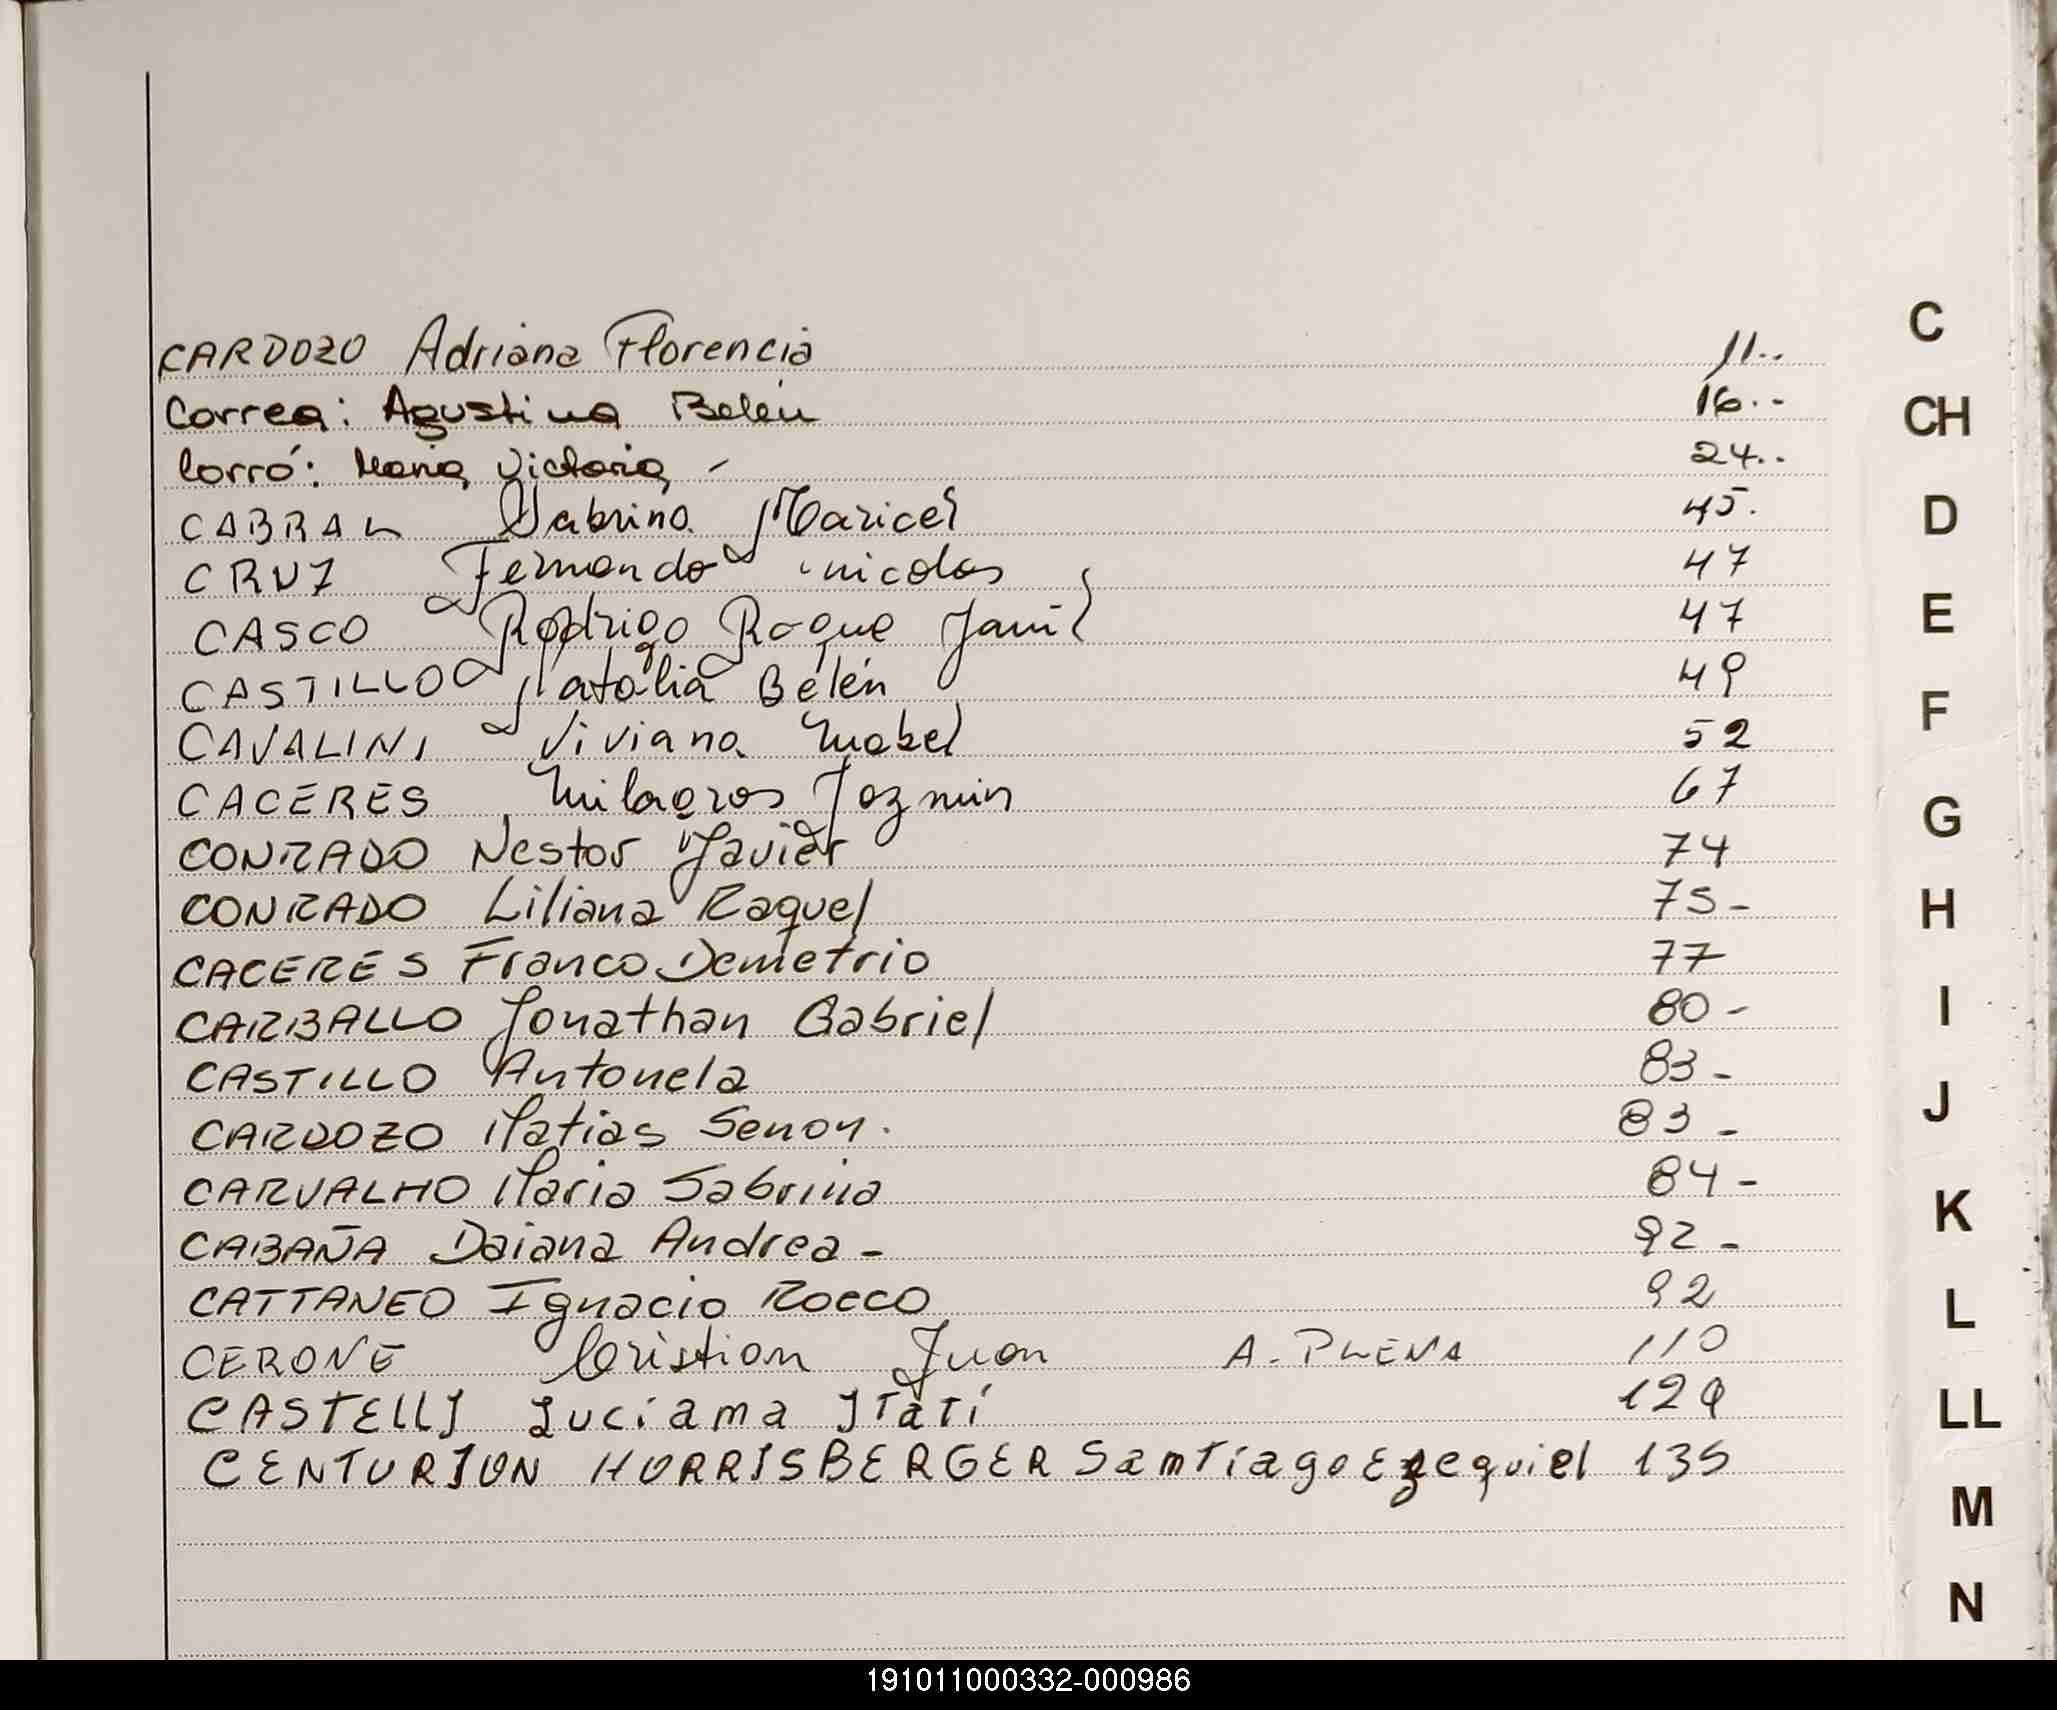 CARDOZO Adriana Florencia 11..
Correa: Agustina Belén 16.-
Corró: Maria Victoria - 24..
CABRAL Sabrina Maricel 45.
CRUZ Fernando nicolas 47
CASCO Rodrigo Roque Jamil 47
CASTILLO Natalia Belén 49
CAVALINI Viviana Mabel 52
CACERES Milagros Jazmin 67
CONRADO Nestor Javier 74
CONRADO Liliana Raquel 75-
CACERES Franco Demetrio 77
CARBALLO Jonathan Gabriel 80-
CASTILLO Antonela 83-
CARDOZO Matias Senon. 83-
CARVALHO Maria Sabrina 84-
CABAÑA Daiana Andrea - 92-
CATTANEO Ignacio Rocco 92
CERONE Cristian Juan A. PLENA 110
CASTELLI Luciana Itatí 129
CENTURION HORRISBERGER Santiago Ezequiel 135
C
CH
D
E
F
G
H
I
J
K
L
LL
M
N
191011000332-000986